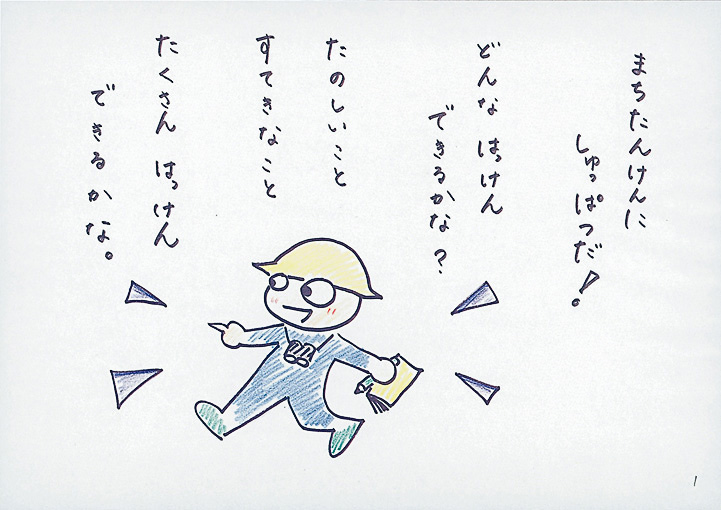 まちたんけんに
しゅっぱつだ！
どんな はっけん
できるかな？
たのしいこと
すてきなこと
たくさん はっけん
できるかな。
1